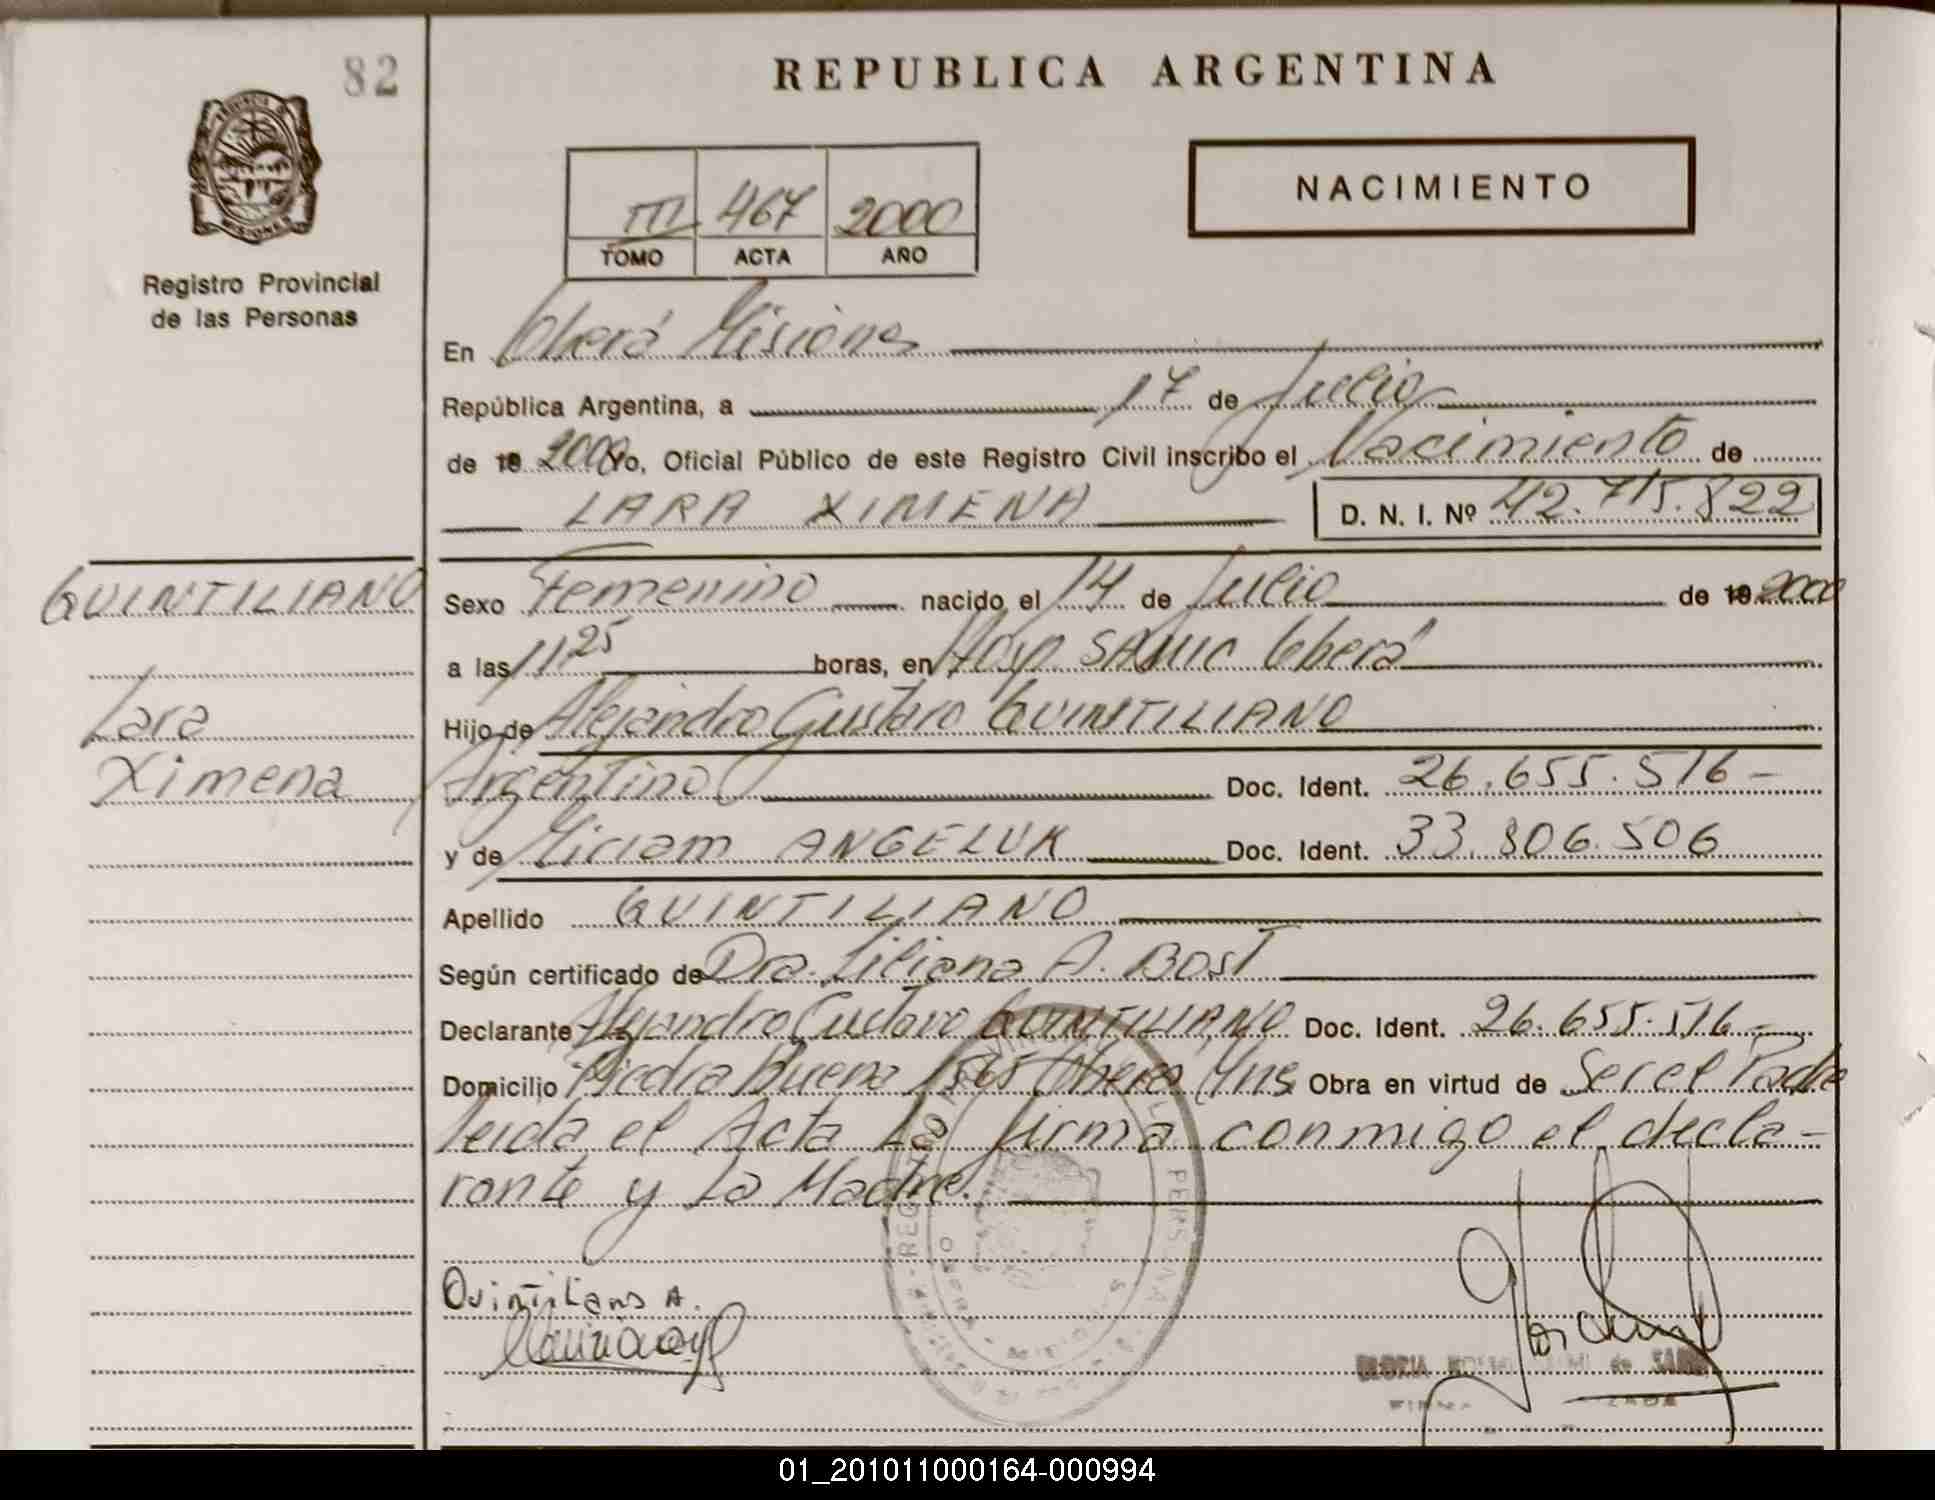 82
REPUBLICA ARGENTINA
PROVINCIA DE
MISIONES
Registro Provincial
de las Personas
III 467 2000
TOMO ACTA AÑO
NACIMIENTO
En Oberá Misiones
República Argentina, a 17 de Julio
de 19 2000 Yo, Oficial Público de este Registro Civil inscribo el Nacimiento de
LARA XIMENA D. N. I. Nº 42.715.822
QUINTILIANO
Lara
Ximena
Sexo Femenino nacido el 14 de Julio de 19 2000
a las 11,25 horas, en Hosp SAMIC Oberá
Hijo de Alejandro Gustavo QUINTILIANO
Argentino Doc. Ident. 26.655.516-
y de Miriam ANGELUK Doc. Ident. 33.806.506
Apellido QUINTILIANO
Según certificado de Dra. Liliana A. Bost
Declarante Alejandro Gustavo QUINTILIANO Doc. Ident. 26.655.516-
Domicilio Piedra Buena Oberá Mns Obra en virtud de Ser el Padre
leida el Acta La firma conmigo el decla-
rante y La Madre.
Quintiliano A.
GLORIA de
01_201011000164-000994